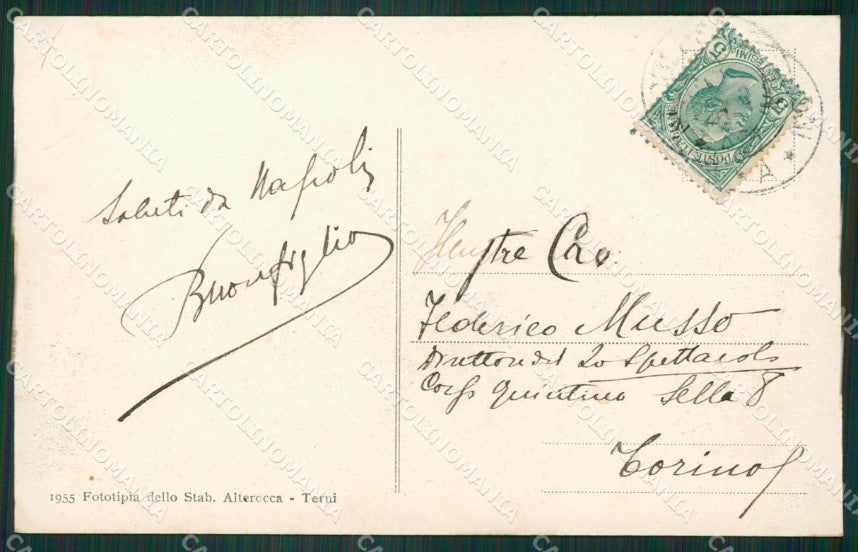 Saluti da Napoli
Buonfiglio
Illustre Cav.
Federico Musso
Direttore del Lo Spettacolo
Corso Quintino Sella 8
Torino
1955 Fototipia dello Stab. Alterocca - Terni
CARTOLINOMANIA